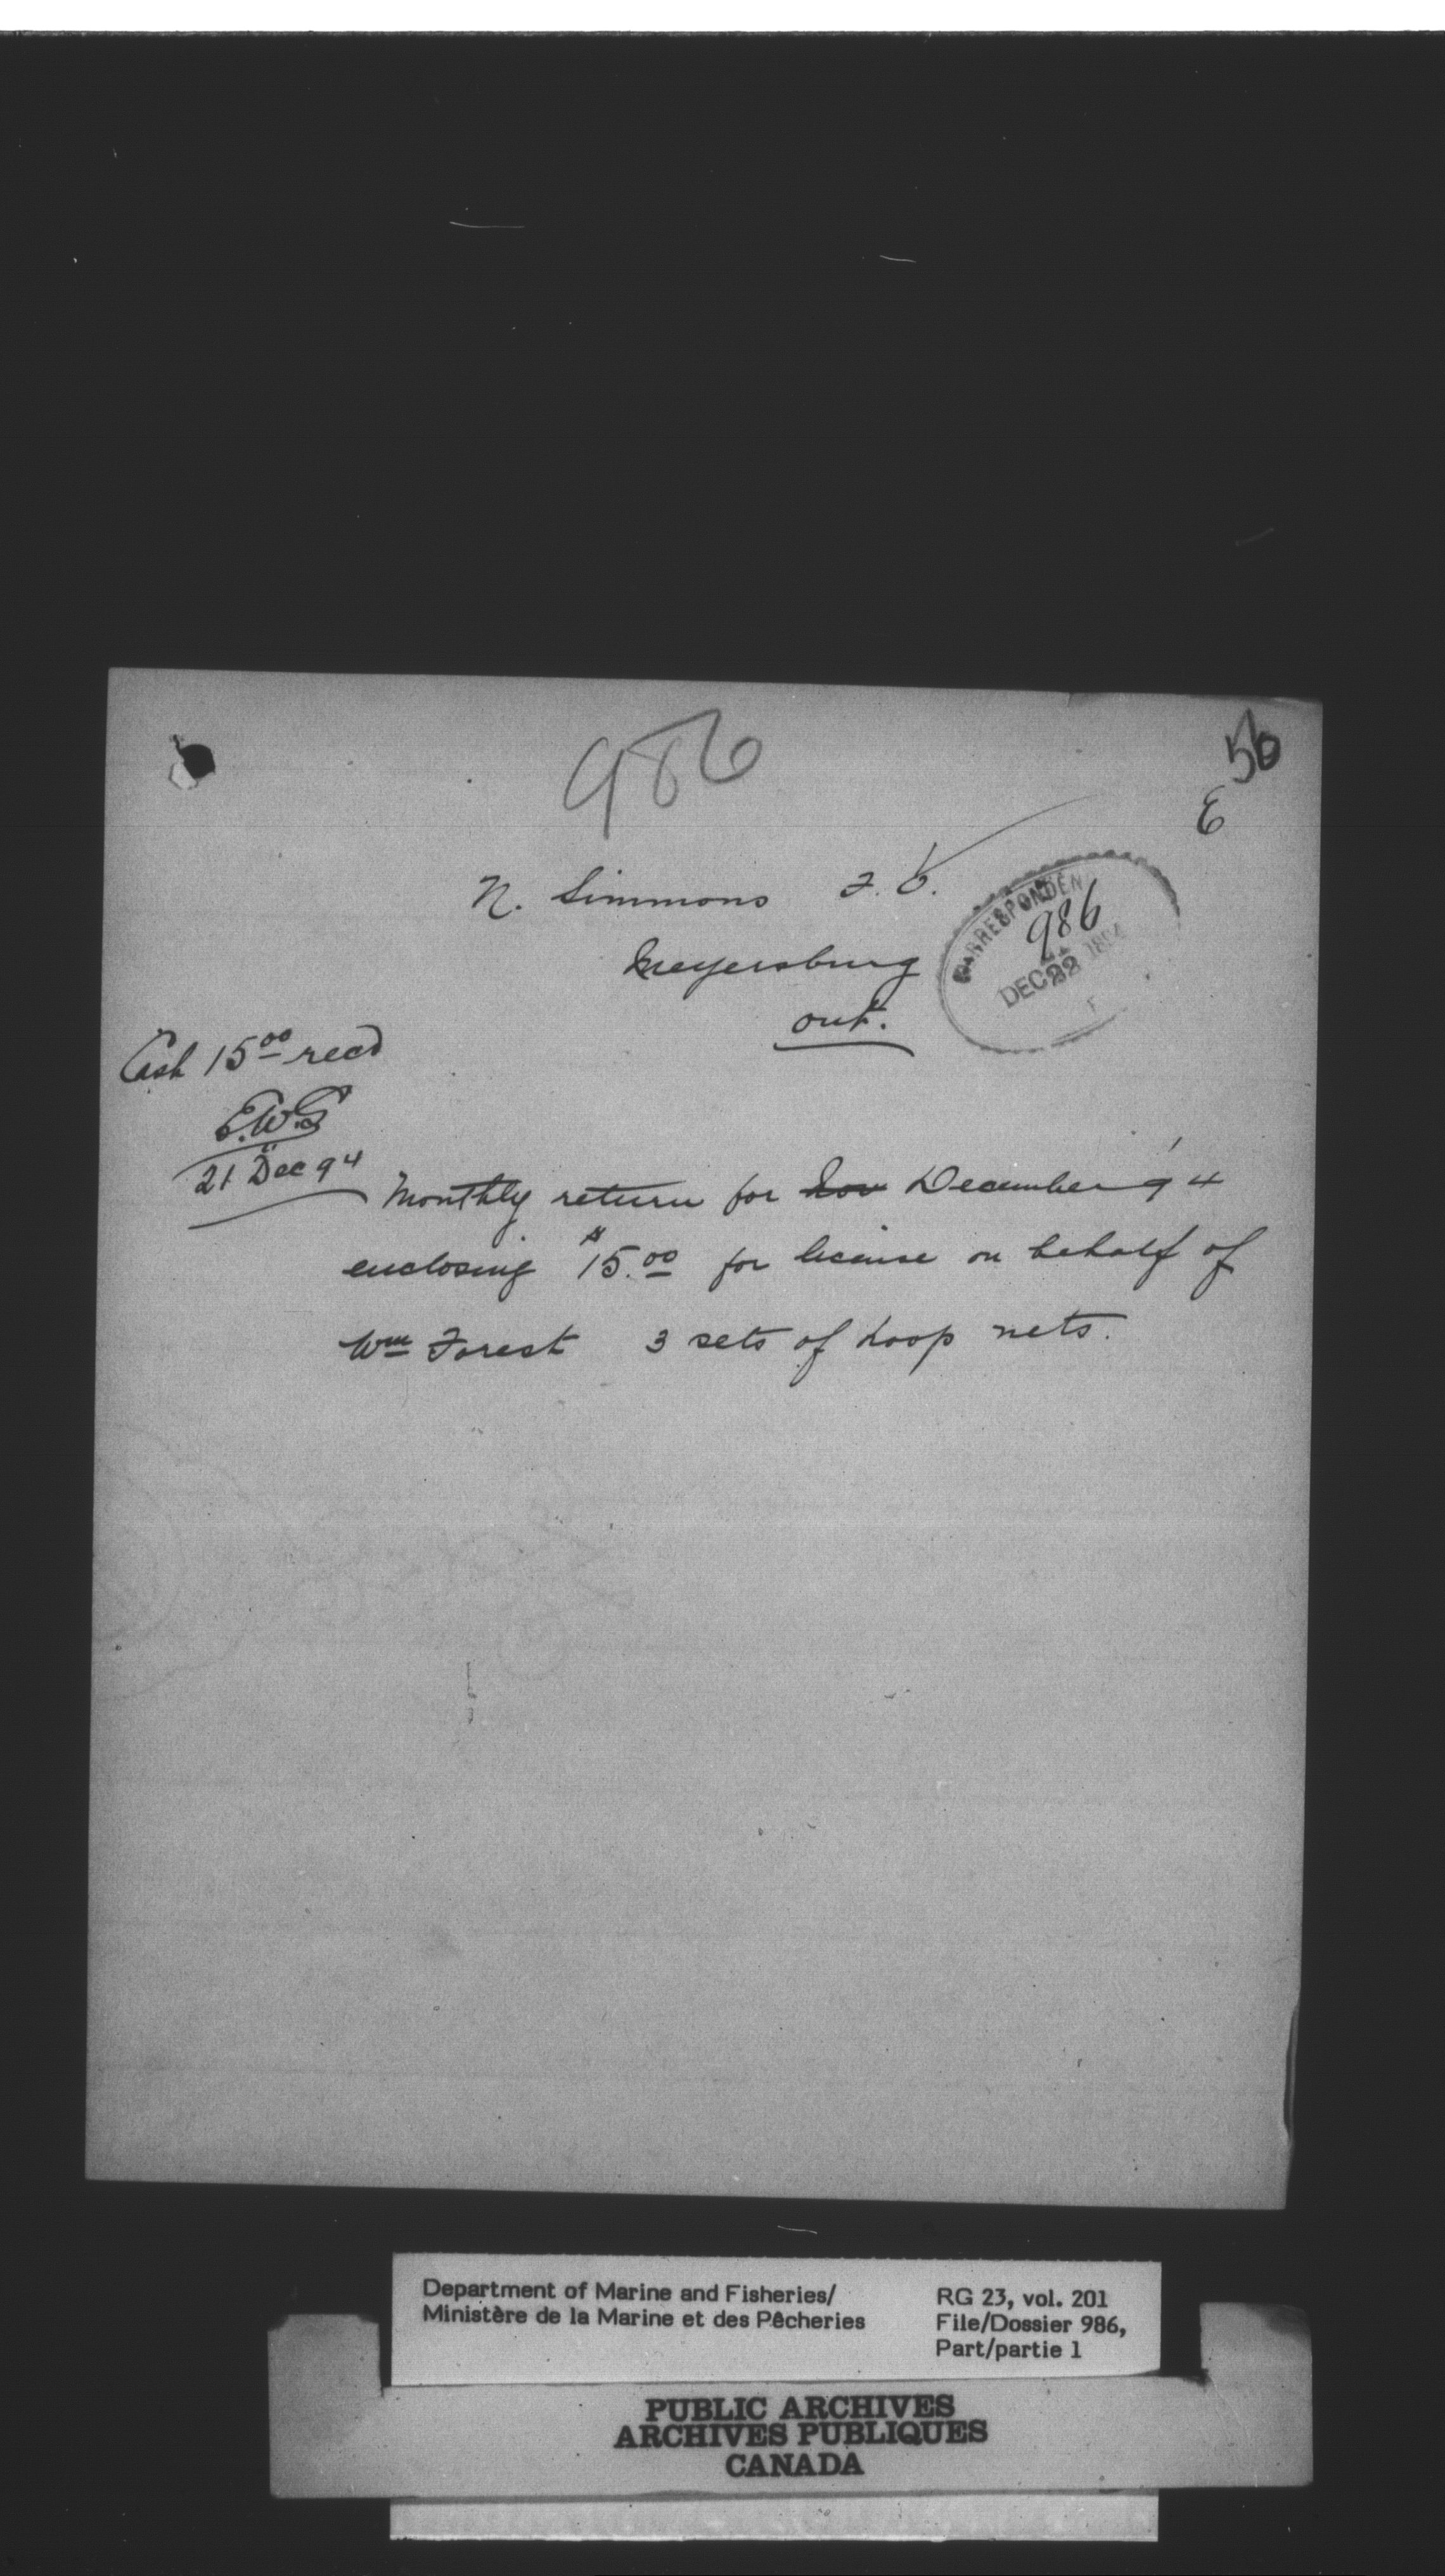 986
56
E
N. Simmons F. O.
Meyersburg
Ont.
CORRESPONDEN
986
DEC 22 1894
Cash 15.00 recd
E.W.G
21 Dec 94
Monthly return for Nov December '94
enclosing $15.00 for license on behalf of
Wm Forest 3 sets of hoop nets.
Department of Marine and Fisheries/
Ministère de la Marine et des Pêcheries
RG 23, vol. 201
File/Dossier 986,
Part/partie 1
PUBLIC ARCHIVES
ARCHIVES PUBLIQUES
CANADA